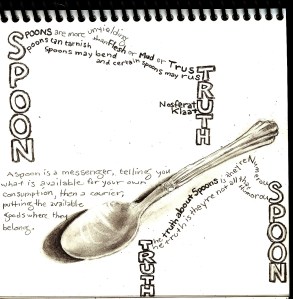 SPOON
SPOONS are more unyielding
than Flesh or Mud or Trust
spoons can tarnish
Spoons may bend
and certain spoons may rust
TRUTH
Nosferat
Klaat
A spoon is a messenger, telling you
what is available for your own
consumption, then a courier,
putting the available
goods where they
belong.
SPOON
The truth about Spoons is they're Numerous
The truth is they're not all that humorous
TRUTH